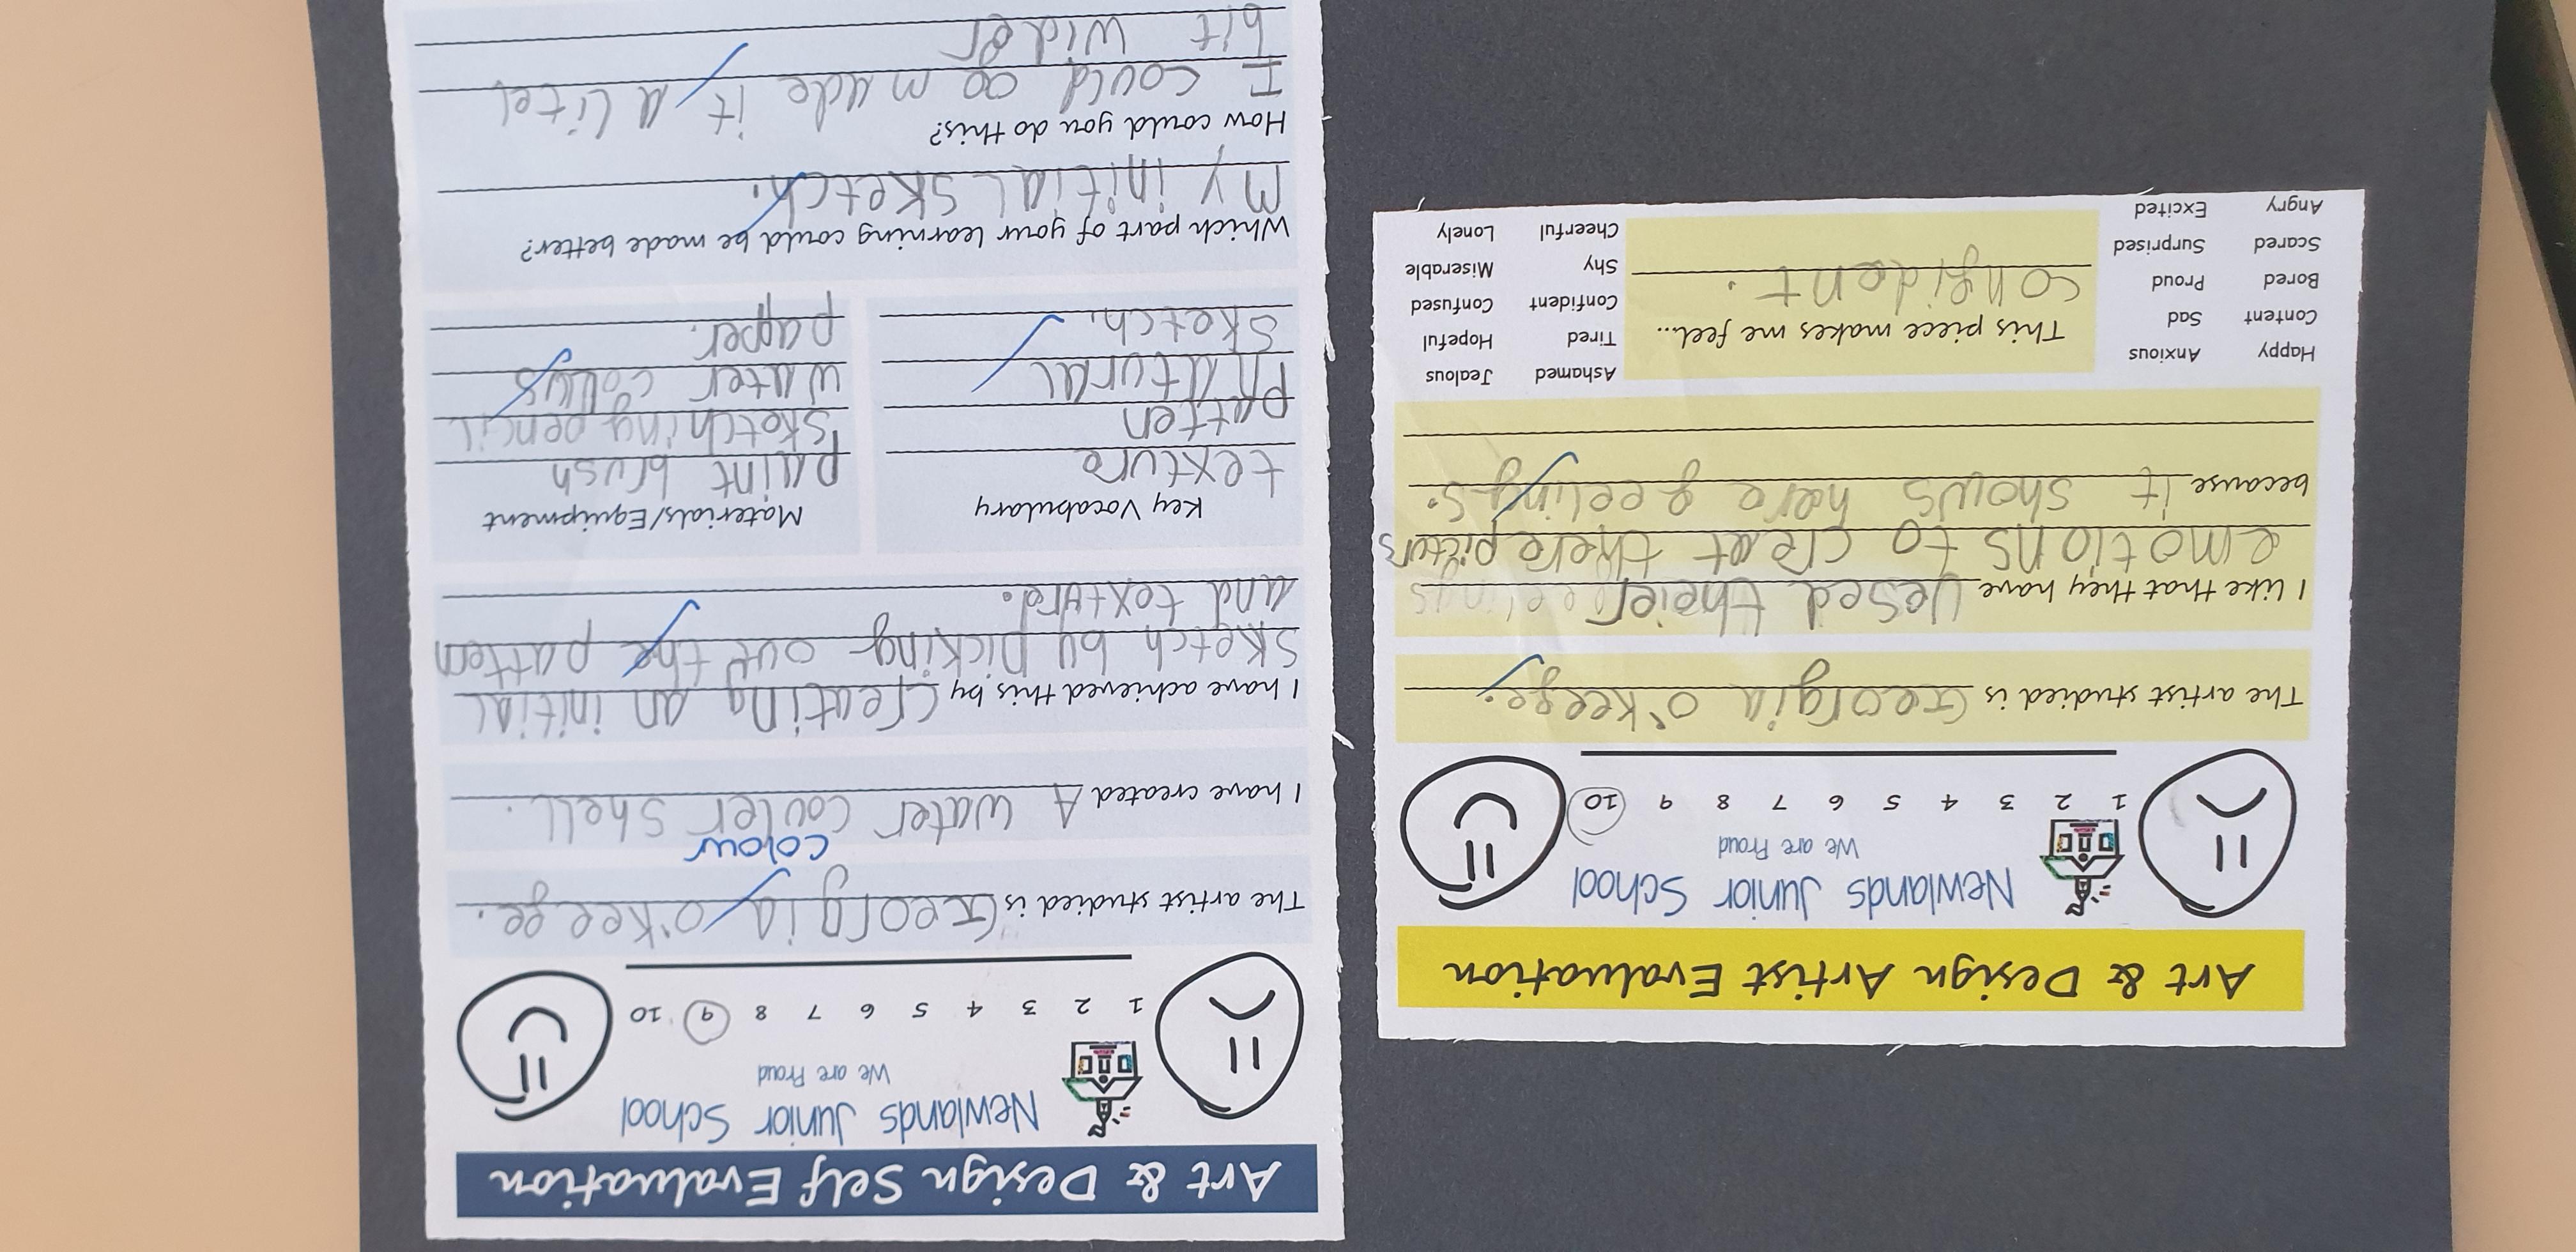 Art & Design Artist Evaluation
Newlands Junior School
We are Proud
1 2 3 4 5 6 7 8 9 10
The artist studied is Georgia o'keefe.
I like that they have Uesed theier
emotions to creat there picturs
because it shows here feelings.
This piece makes me feel...
confident.
Happy Anxious
Content Sad
Bored Proud
Scared Surprised
Angry Excited
Ashamed Jealous
Tired Hopeful
Confident Confused
Shy Miserable
Cheerful Lonely
Art & Design Self Evaluation
Newlands Junior School
We are Proud
1 2 3 4 5 6 7 8 9 10
The artist studied is Georgia o'keefe.
colour
I have created A water couler shell.
I have achieved this by creating an initial
sketch by picking out the pattern
and texture.
Key Vocabulary
texture
patten
pnatural
sketch.
Materials/Equipment
paint brush
sketching pencil
water
papper.
Which part of your learning could be made better?
My initial sketch.
How could you do this?
I could made it a litel
bit wider